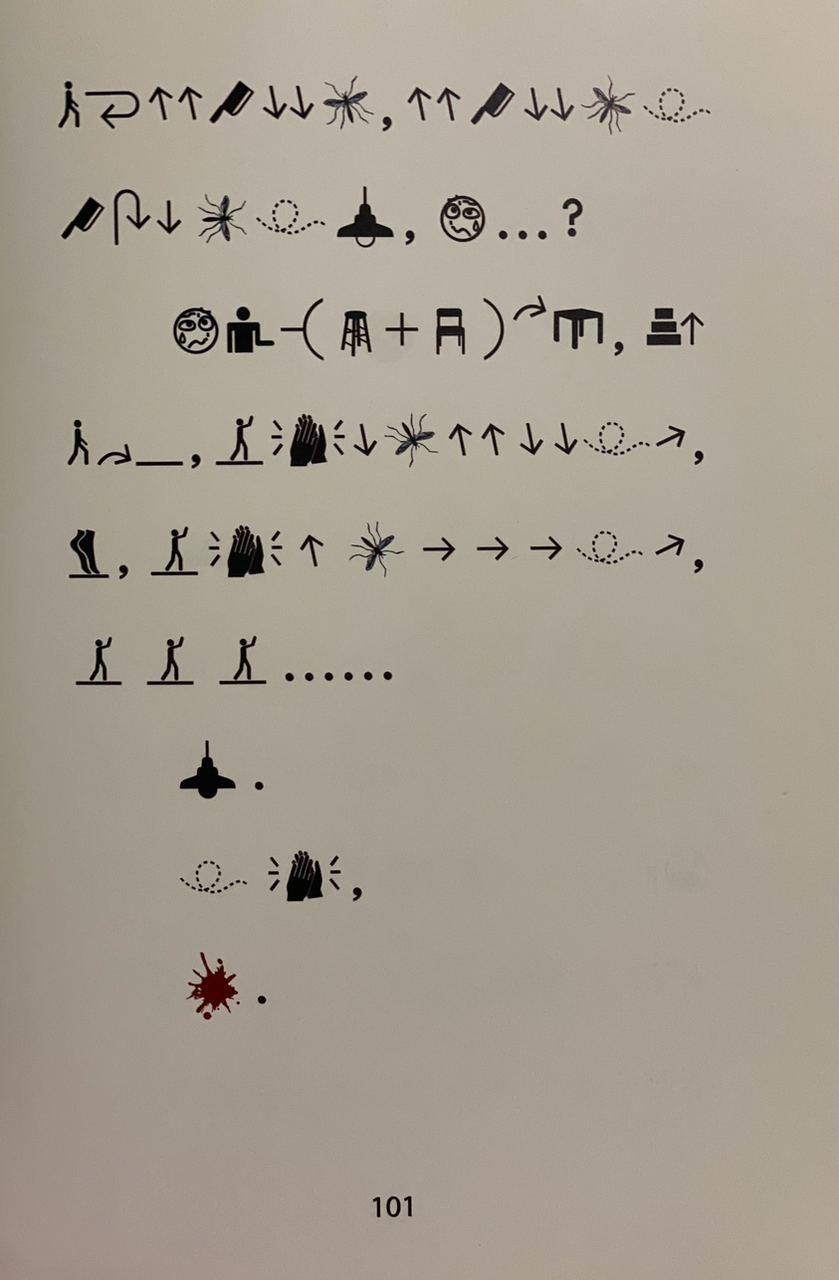 ↑↑ ↓↓ , ↑↑ ↓↓
↓ , ...?
-( + ) , ↑
, ↓ ↑↑ ↓↓ ↗ ,
, ↑ → → → ↗ ,
......
.
,
.
101